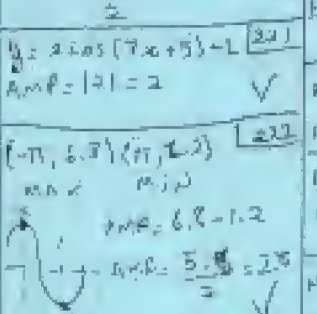 5
y = 2 cos(7x + 5) - 2 221
AMP = |2| = 2 ✓
(-π, 6.8) (π, 1.2) 222
max min
AMP = 6.8 - 1.2
AMP = 5.6/2 = 2.8 ✓